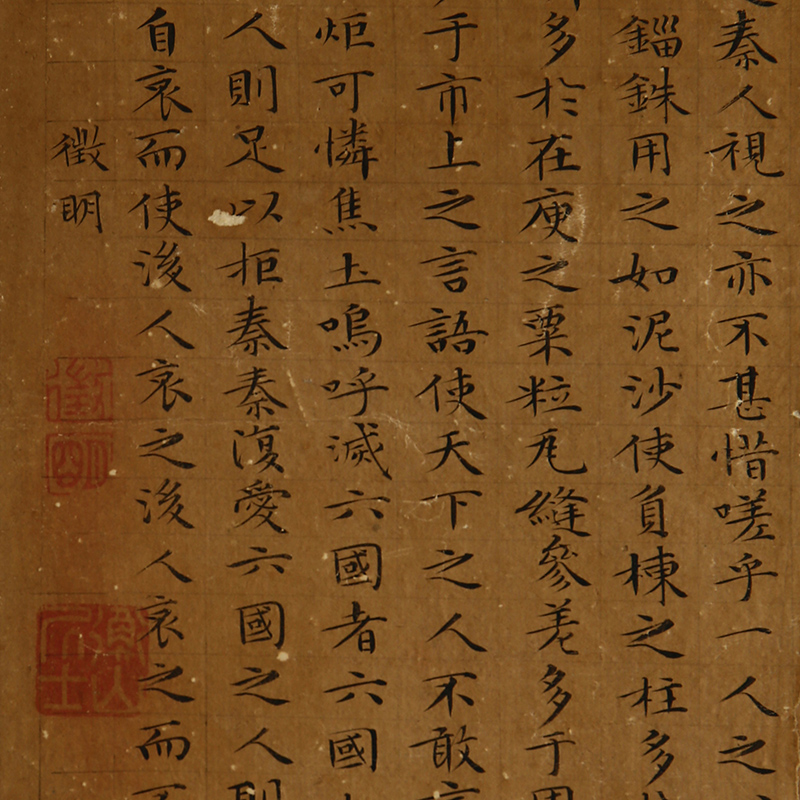 秦人視之亦不甚惜嗟乎一人之
錙銖用之如泥沙使負棟之柱多
多於在庾之粟粒瓦縫參差多于周
于市上之言語使天下之人不敢言
炬可憐焦土嗚呼滅六國者六國
人則足以拒秦秦復愛六國之人則
自哀而使後人哀之後人哀之而不
徵明
徵明